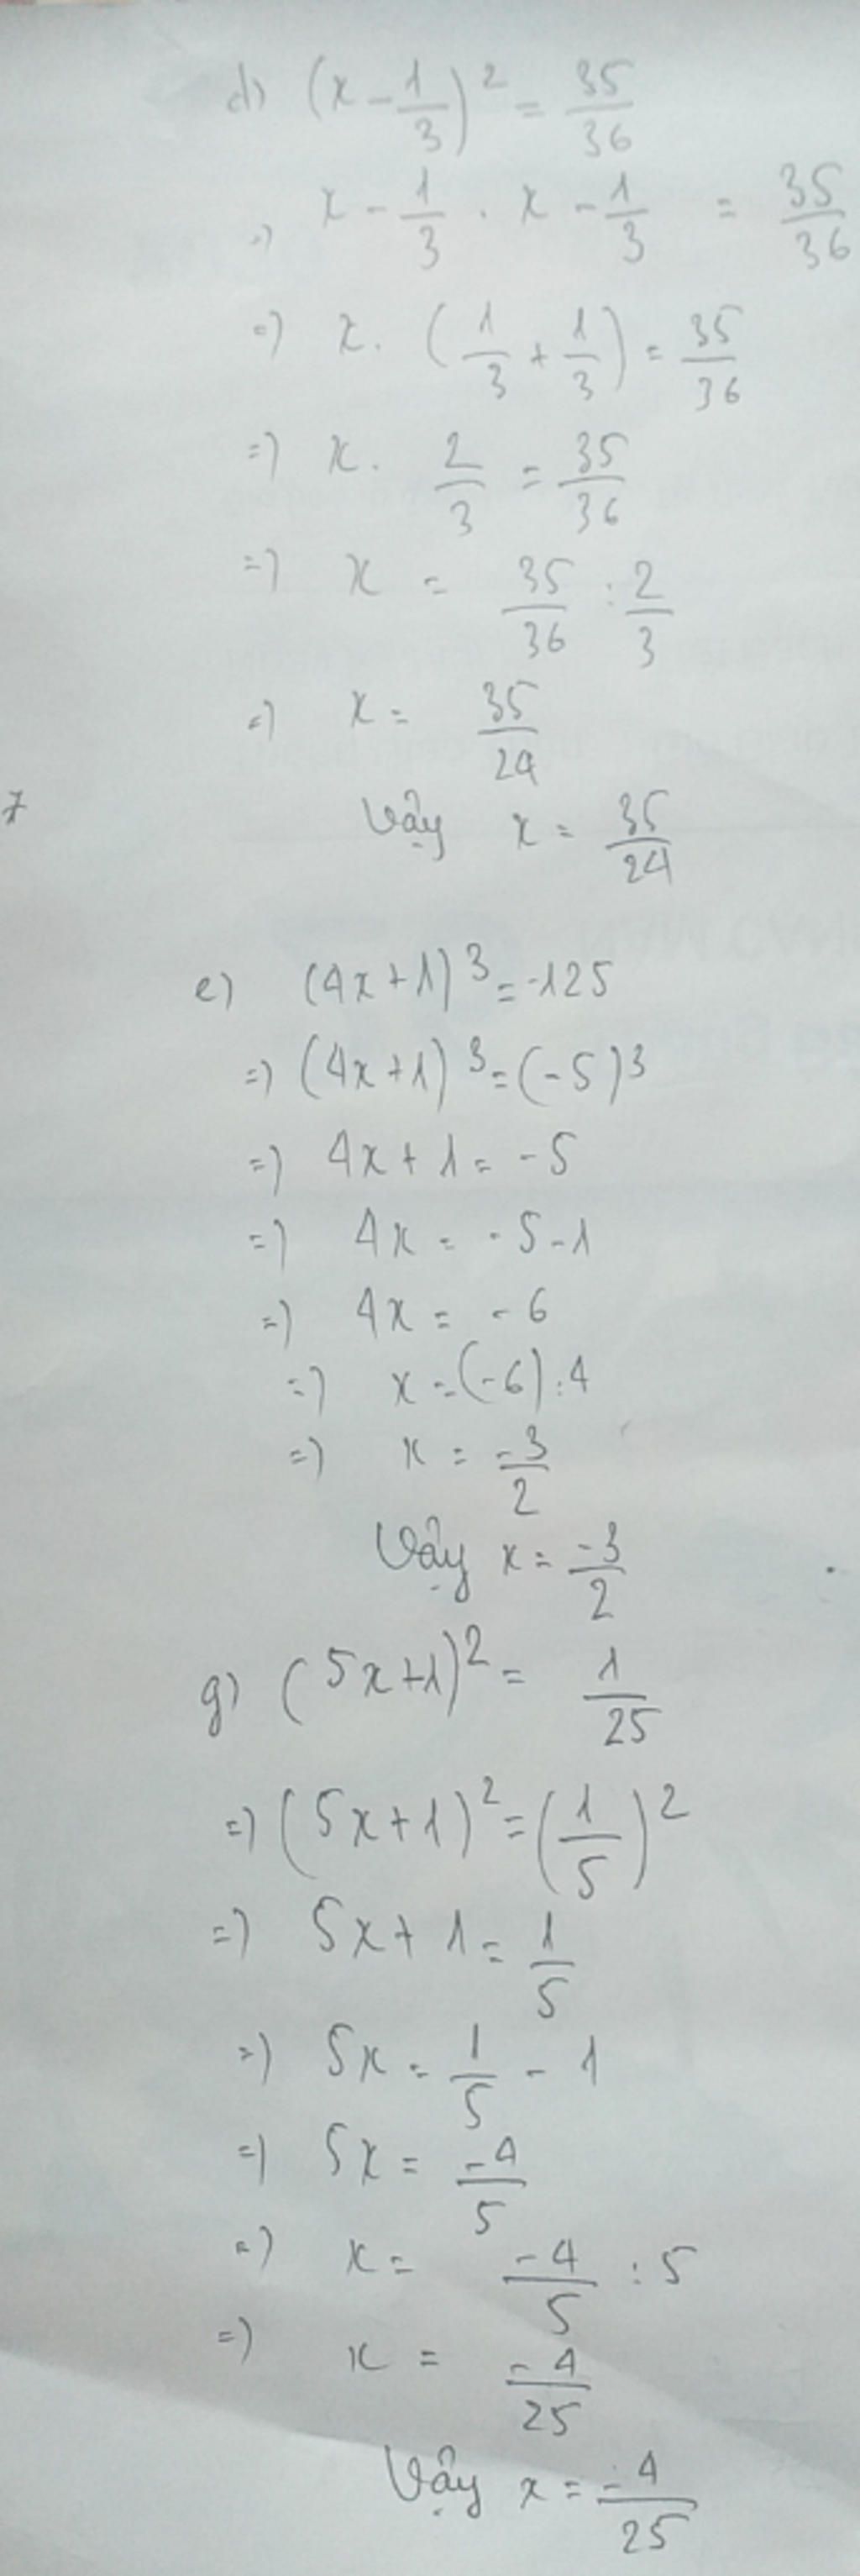 d) (x - 1/3)² = 35/36
=> x - 1/3 . x - 1/3 = 35/36
=> x . (1/3 + 1/3) = 35/36
=> x . 2/3 = 35/36
=> x = 35/36 : 2/3
=> x = 35/24
Vậy x = 35/24
e) (4x+1)³ = -125
=> (4x+1)³ = (-5)³
=> 4x + 1 = -5
=> 4x = -5 - 1
=> 4x = -6
=> x = (-6) : 4
=> x = -3/2
Vậy x = -3/2
g) (5x+1)² = 1/25
=> (5x+1)² = (1/5)²
=> 5x + 1 = 1/5
=> 5x = 1/5 - 1
=> 5x = -4/5
=> x = -4/5 : 5
=> x = -4/25
Vậy x = -4/25